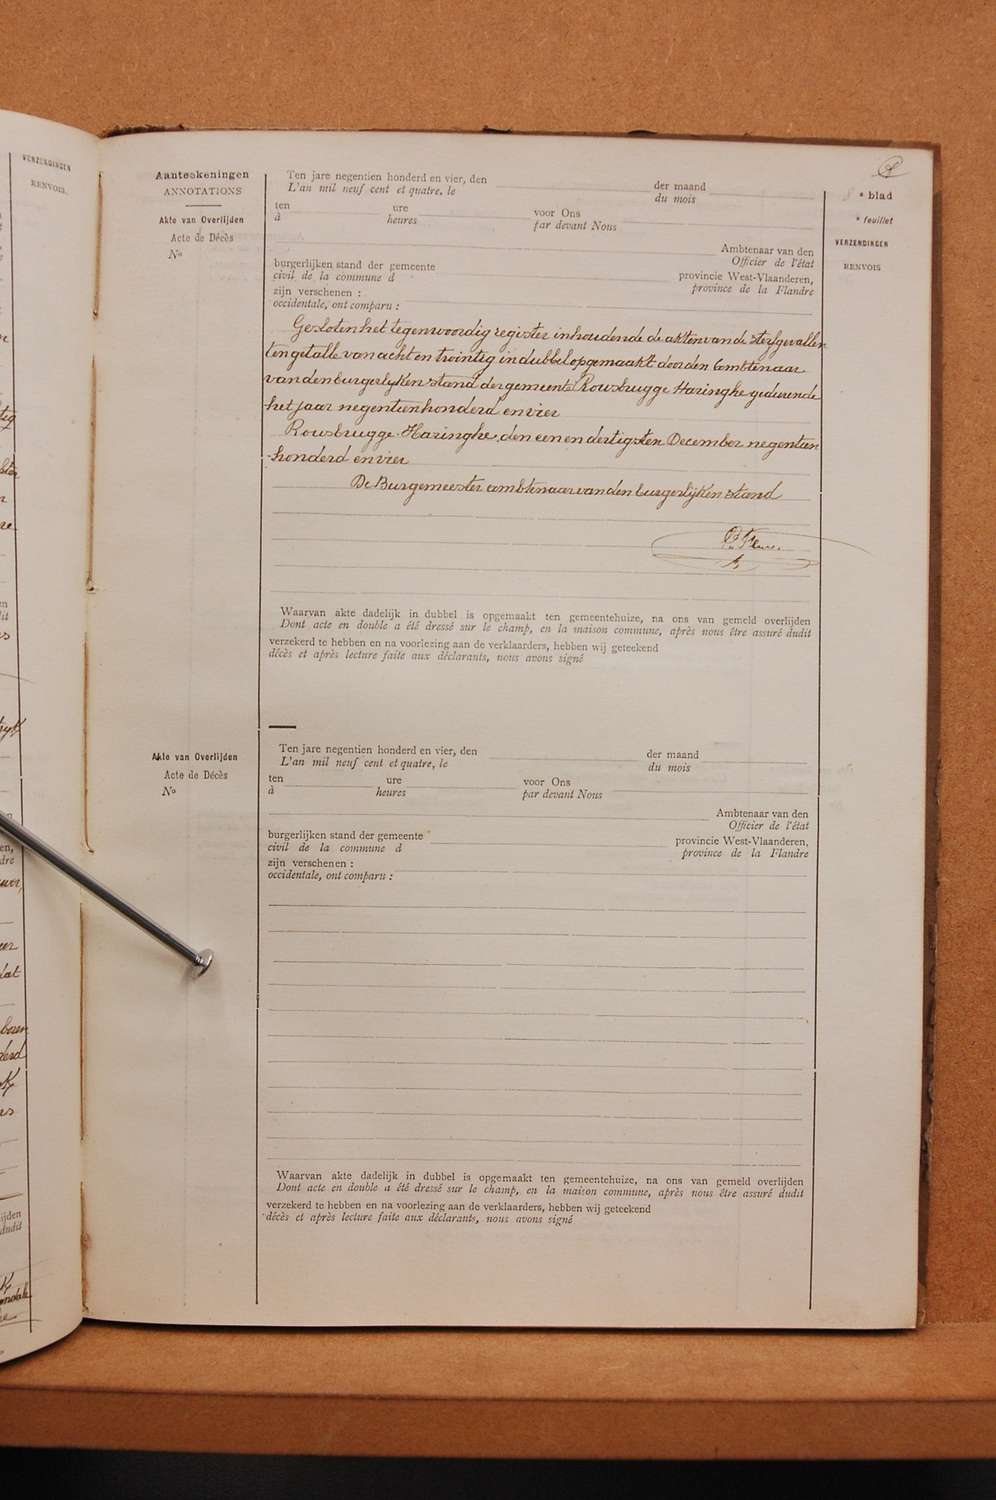 VERZENDINGEN
RENVOIS.
Aanteekeningen
ANNOTATIONS
Akte van Overlijden
Acte de Décès
No
Ten jare negentien honderd en vier, den
L'an mil neuf cent et quatre, le
der maand
du mois
ten
à
ure
heures
voor Ons
par devant Nous
Ambtenaar van den
Officier de l'état
burgerlijken stand der gemeente
civil de la commune d
provincie West-Vlaanderen,
province de la Flandre
zijn verschenen :
occidentale, ont comparu :
8 e blad
e feuillet
VERZENDINGEN
RENVOIS
Gesloten het tegenwoordig register inhoudende de akten van de sterfgevallen
ten getalle van acht en twintig in dubbel opgemaakt door den Ambtenaar
van den burgerlyken stand der gemeente Rousbrugge Haringhe gedurende
het jaar negentien honderd en vier
Rousbrugge-Haringhe, den een en dertigsten December negentien
honderd en vier
De Burgemeester ambtenaar van den burgerlijken stand
Waarvan akte dadelijk in dubbel is opgemaakt ten gemeentehuize, na ons van gemeld overlijden
Dont acte en double a été dressé sur le champ, en la maison commune, après nous être assuré dudit
verzekerd te hebben en na voorlezing aan de verklaarders, hebben wij geteekend
décès et après lecture faite aux déclarants, nous avons signé
Akte van Overlijden
Acte de Décès
No
Ten jare negentien honderd en vier, den
L'an mil neuf cent et quatre, le
der maand
du mois
ten
à
ure
heures
voor Ons
par devant Nous
Ambtenaar van den
Officier de l'état
burgerlijken stand der gemeente
civil de la commune d
provincie West-Vlaanderen,
province de la Flandre
zijn verschenen :
occidentale, ont comparu :
Waarvan akte dadelijk in dubbel is opgemaakt ten gemeentehuize, na ons van gemeld overlijden
Dont acte en double a été dressé sur le champ, en la maison commune, après nous être assuré dudit
verzekerd te hebben en na voorlezing aan de verklaarders, hebben wij geteekend
décès et après lecture faite aux déclarants, nous avons signé